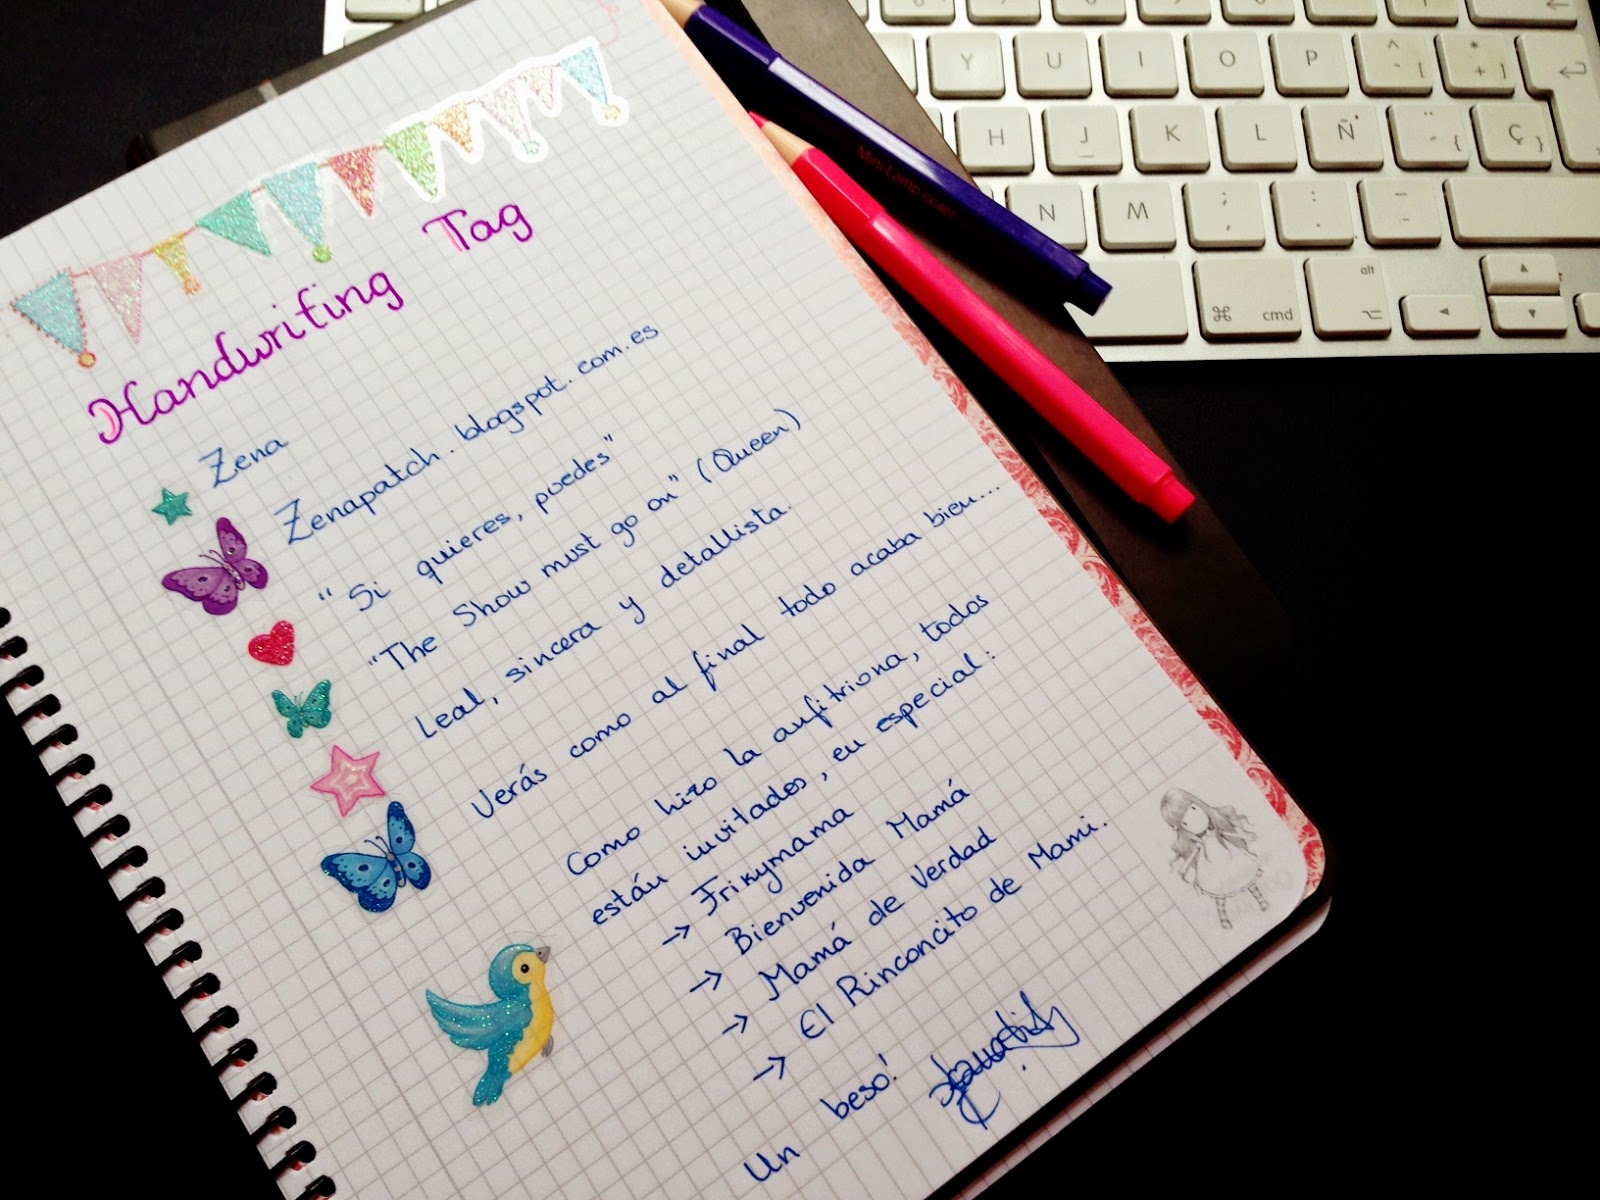 Handwriting Tag
Zena
Zenapatch.blogspot.com.es
"Si quieres, puedes"
"The Show must go on" (Queen)
Leal, sincera y detallista.
Verás como al final todo acaba bien....
Como hizo la anfitriona, todos
están invitados, en especial:
→ Frikymama
→ Bienvenida Mamá
→ Mamá de Verdad
→ El Rinconcito de Mami.
Un beso!
Mini Lamp
Y U I O P ^ [ * + ]
H J K L Ñ ¨ { Ç }
N M ; , : . _ -
⌘ cmd alt ⌥ ◄ ▲ ▼